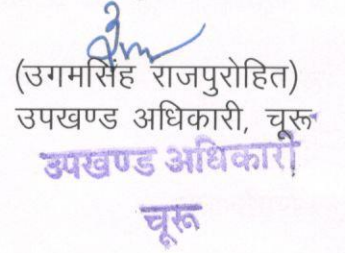 (उगमसिंह राजपुरोहित)
उपखण्ड अधिकारी, चूरू
उपखण्ड अधिकारी
चूरू